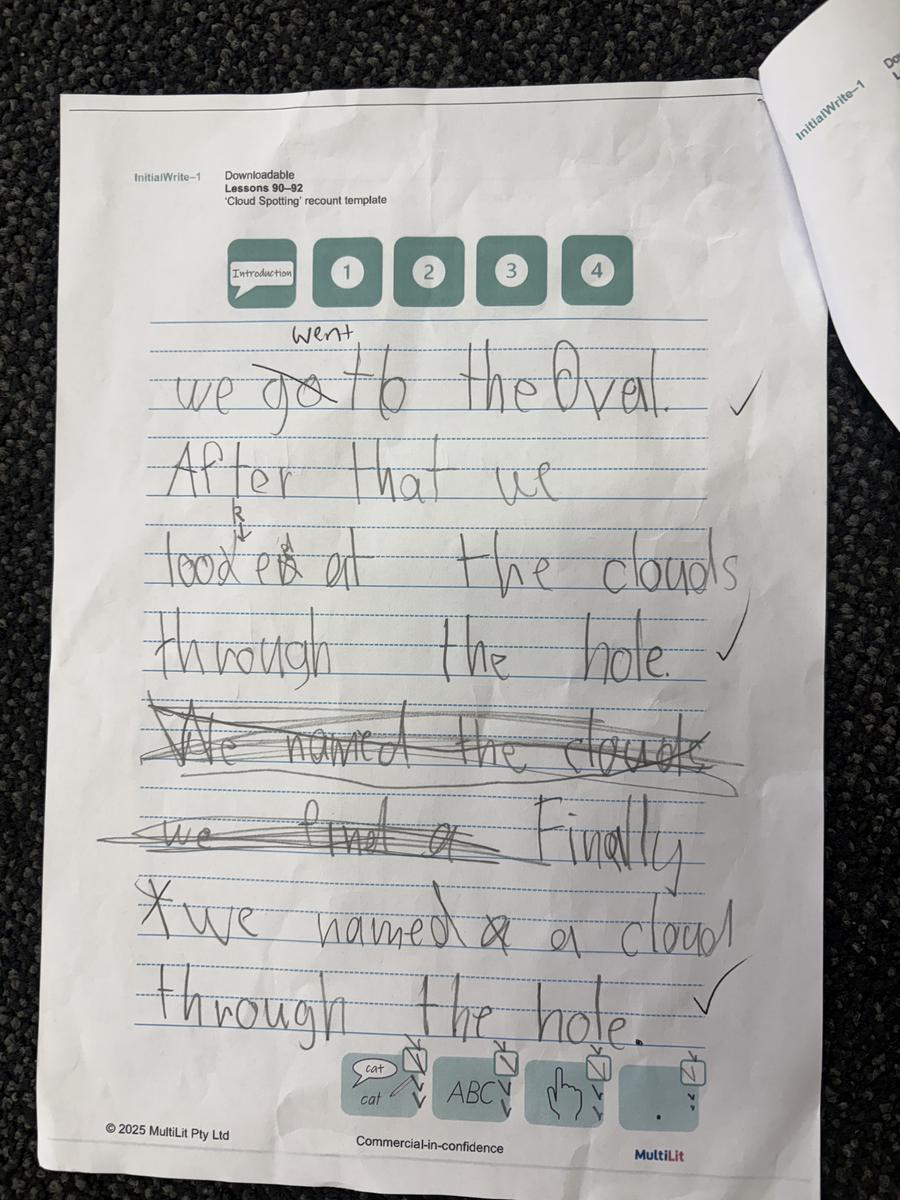 InitialWrite–1
Downloadable
Lessons 90–92
'Cloud Spotting' recount template
InitialWrite–1
Introduction 1 2 3 4
went
we go to the Oval.
After that we
k
looded at the clouds
through the hole.
We named the clouds
we find a Finally
we named a a cloud
through the hole.
cat
cat ABC .
© 2025 MultiLit Pty Ltd
Commercial-in-confidence
MultiLit